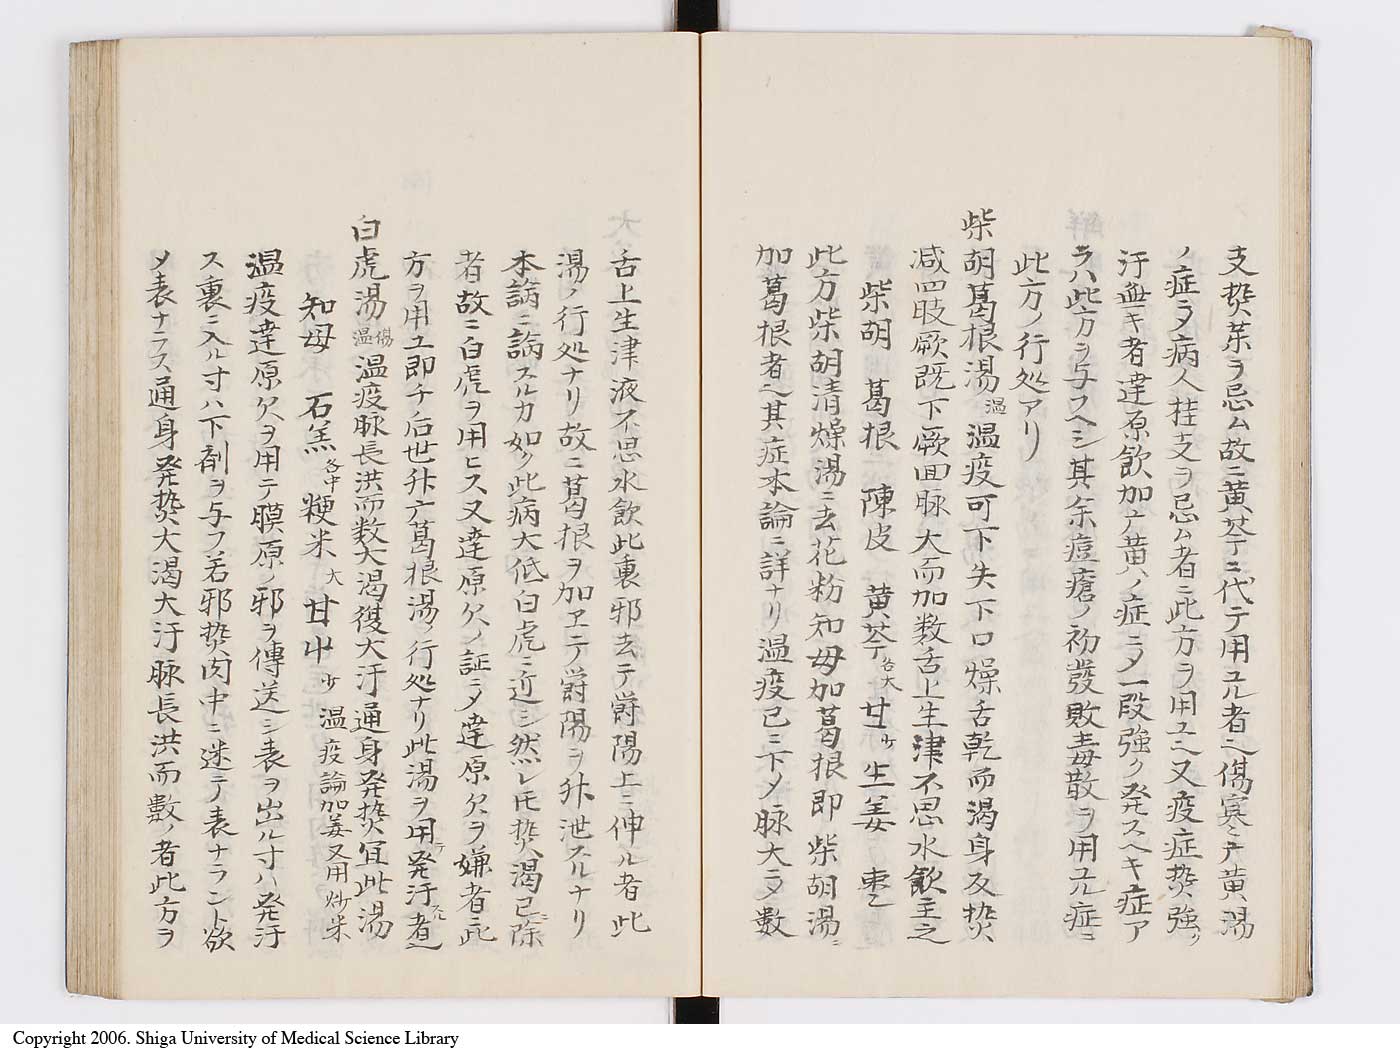 支熱菜ヲ忌ム故ニ黄芩ニ代テ用ユル者也傷寒ニテ黄湯
ノ症ヲメ病人桂支ヲ忌ム者ニ此方ヲ用ユ又疫症熱強ク
汗無キ者達原飲加亠黄ノ症ニメ一段強ク発スヘキ症ア
ラハ此方ヲ与フヘシ其余痘瘡ノ初發敗毒散ヲ用ル症ニ
此方ノ行処アリ
柴胡葛根湯 温 温疫可下失下口燥舌乾而渇身反熱
减四肢厥既下厥回脉大而加数舌上生津不思水飲主之
柴胡 葛根 陳皮 黄芩 各大 甘 少 生姜 棗
此方柴胡清燥湯ニ去花粉知母加葛根即柴胡湯ニ
加葛根者也其症本論ニ詳ナリ温疫已ニ下メ脉大ニメ數
舌上生津液不思水飲此裏邪去テ欝陽上ニ伸ル者此
湯ノ行処ナリ故ニ葛根ヲ加ヱテ欝陽ヲ升泄スルナリ
本論ニ論スルカ如ク此病大低白虎ニ近シ然レ𪜈熱渇已ニ除
者故ニ白虎ヲ用ヒス又達原欠ノ証ニメ達原欠ヲ嫌者ニ此
方ヲ用ユ即チ后世升亠葛根湯ノ行処ナリ此湯ヲ用テ発汗者也
白虎湯 傷温 温疫脉長洪而数大渇復大汗通身発熱宜此湯
知母 石羔 各中 粳米 大 甘屮 少 温疫論加姜又用炒米
温疫達原欠ヲ用テ膜原ノ邪ヲ傳送シ表ヲ出ル寸ハ発汗
ス裏ニ入ル寸ハ下剤ヲ与フ若邪熱肉中ニ迷テ表ナラント欲
メ表ナラス通身発熱大渇大汗脉長洪而數ノ者此方ヲ
Copyright 2006. Shiga University of Medical Science Library